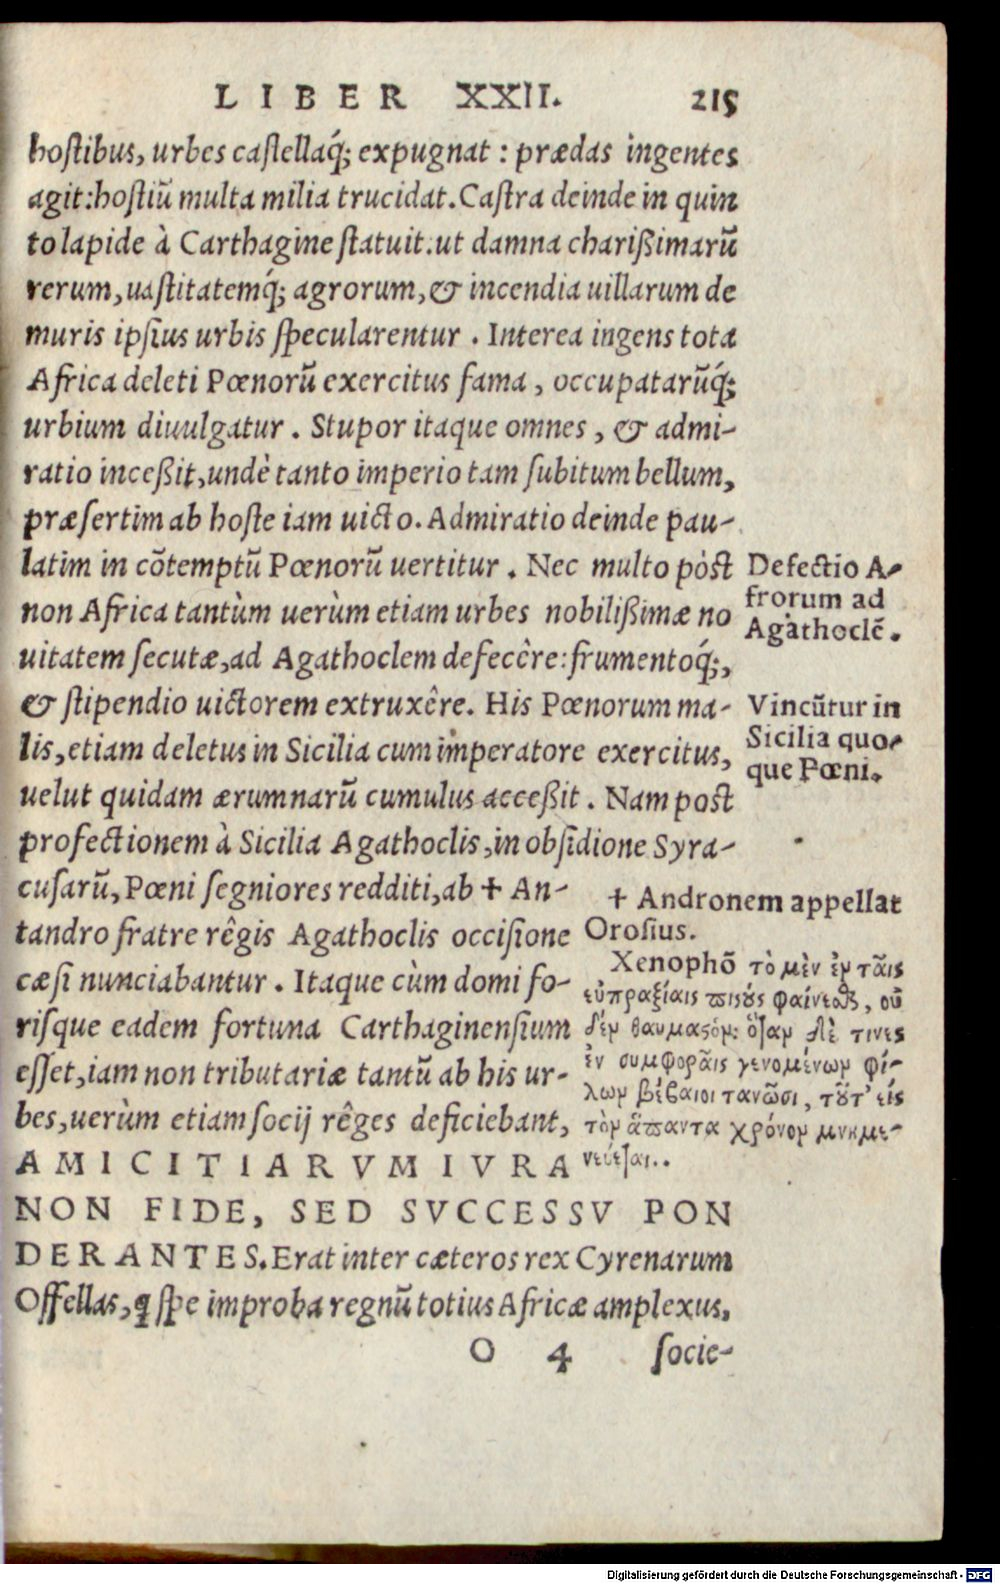 LIBER XXII. 215
hostibus, urbes castellaq́; expugnat : prædas ingentes
agit: hostiũ multa milia trucidat. Castra deinde in quin
to lapide à Carthagine statuit. ut damna charißimarũ
rerum, uastitatemq́; agrorum, & incendia uillarum de
muris ipsius urbis specularentur . Interea ingens tota
Africa deleti Pœnorũ exercitus fama , occupatarũq́;
urbium diuulgatur . Stupor itaque omnes , & admi-
ratio inceßit, undè tanto imperio tam subitum bellum,
præsertim ab hoste iam uicto. Admiratio deinde pau-
latim in cõtemptũ Pœnorũ uertitur . Nec multo pòst
non Africa tantùm uerùm etiam urbes nobilißimæ no
uitatem secutæ, ad Agathoclem defecêre: frumentoq́;,
& stipendio uictorem extruxêre. His Pœnorum ma-
lis, etiam deletus in Sicilia cum imperatore exercitus,
uelut quidam ærumnarũ cumulus acceßit . Nam post
profectionem à Sicilia Agathoclis, in obsidione Syra-
cusarũ, Pœni segniores redditi, ab + An-
tandro fratre rêgis Agathoclis occisione
cæsi nunciabantur . Itaque cùm domi fo-
risque eadem fortuna Carthaginensium
esset, iam non tributariæ tantũ ab his ur-
bes, uerùm etiam socij rêges deficiebant,
AMICITIARVM IVRA
NON FIDE, SED SVCCESSV PON
DERANTES. Erat inter cæteros rex Cyrenarum
Offellas, q spe improba regnũ totius Africæ amplexus,
O 4 socie-
Defectio A-
frorum ad
Agathoclẽ.
Vincũtur in
Sicilia quo-
que Pœni.
+ Andronem appellat
Orosius.
Xenophõ τὸ μὲν ἐν ταῖς
εὐπραξίαις πιςοὺς , οὐ
θαυμαςόν: τινες
ἐν συμφοραῖς γενομένων φί-
λων βέβαιοι , τοῦτ' εἰς
τὸν ἅπαντα χρόνον μνημε-
Digitalisierung gefördert durch die Deutsche Forschungsgemeinschaft - DFG